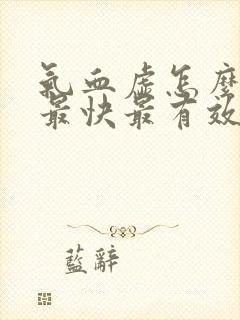 氣血虛怎麼
最快最有效
藍辭